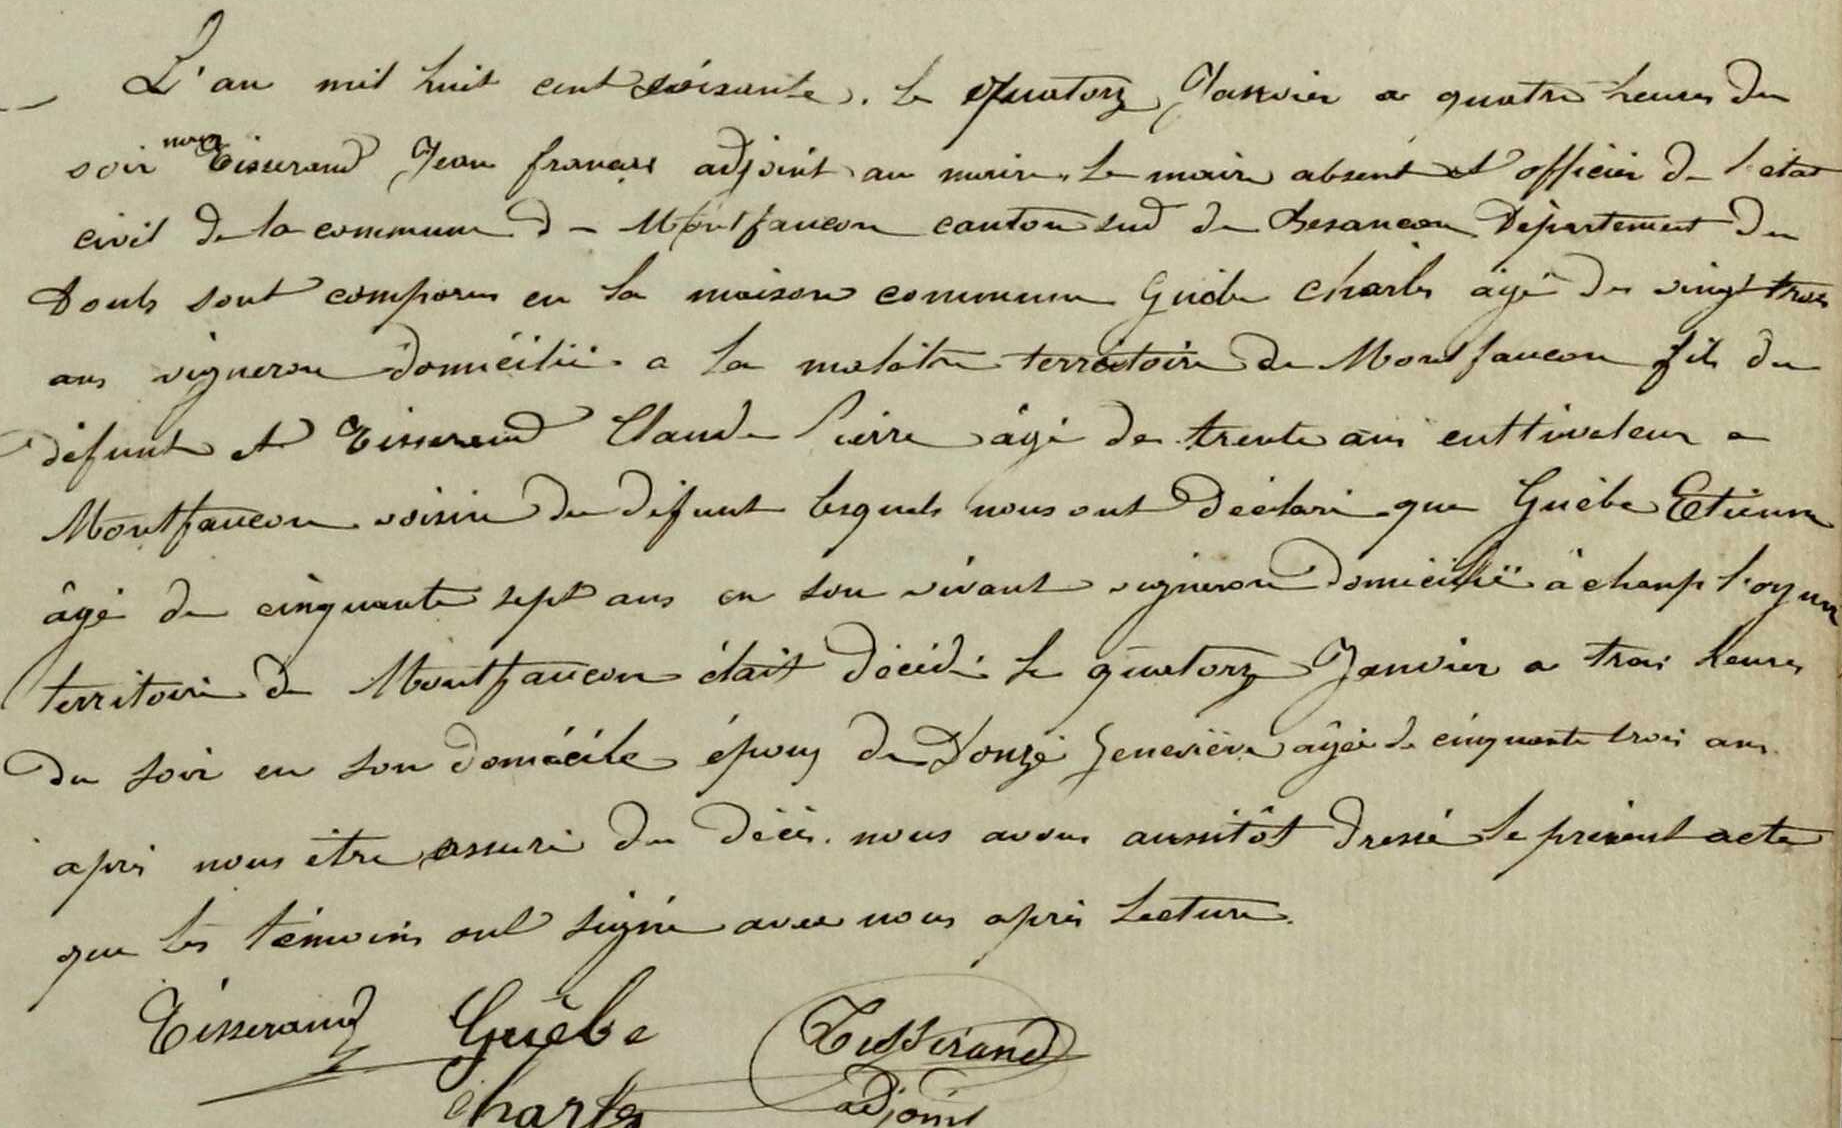 L'an mil huit cent soixante. le quatorze Janvier a quatre heures du
soir nous Tisserand Jean francois adjoint au maire. le maire absent et officier de l'état
civil de la commune de Montfaucon canton sud de Besancon Département du
Doubs sont comparus en la maison commune Guèbe Charles âgé de vingt trois
ans vigneron domicilié a la malâtre territoire de Montfaucon fils du
défunt et Tisserand Claude Pierre âgé de trente ans culttivateur a
Montfaucon voisin du défunt lesquels nous ont déclaré que Guèbe Etienne
âgé de cinquante sept ans en son vivant vigneron domicilié à champ l'oyun
territoire de Montfaucon était décédé le quatorze Janvier a trois heures
du soir en son domicile époux de Donzé Geneviève âgée de cinquante trois ans
après nous être assuré du décès. nous avons aussitôt dressé le présent acte
que les témoins ont signé avec nous après lecture.
Tisserand Guèbe Tisserand
Charles adjoint